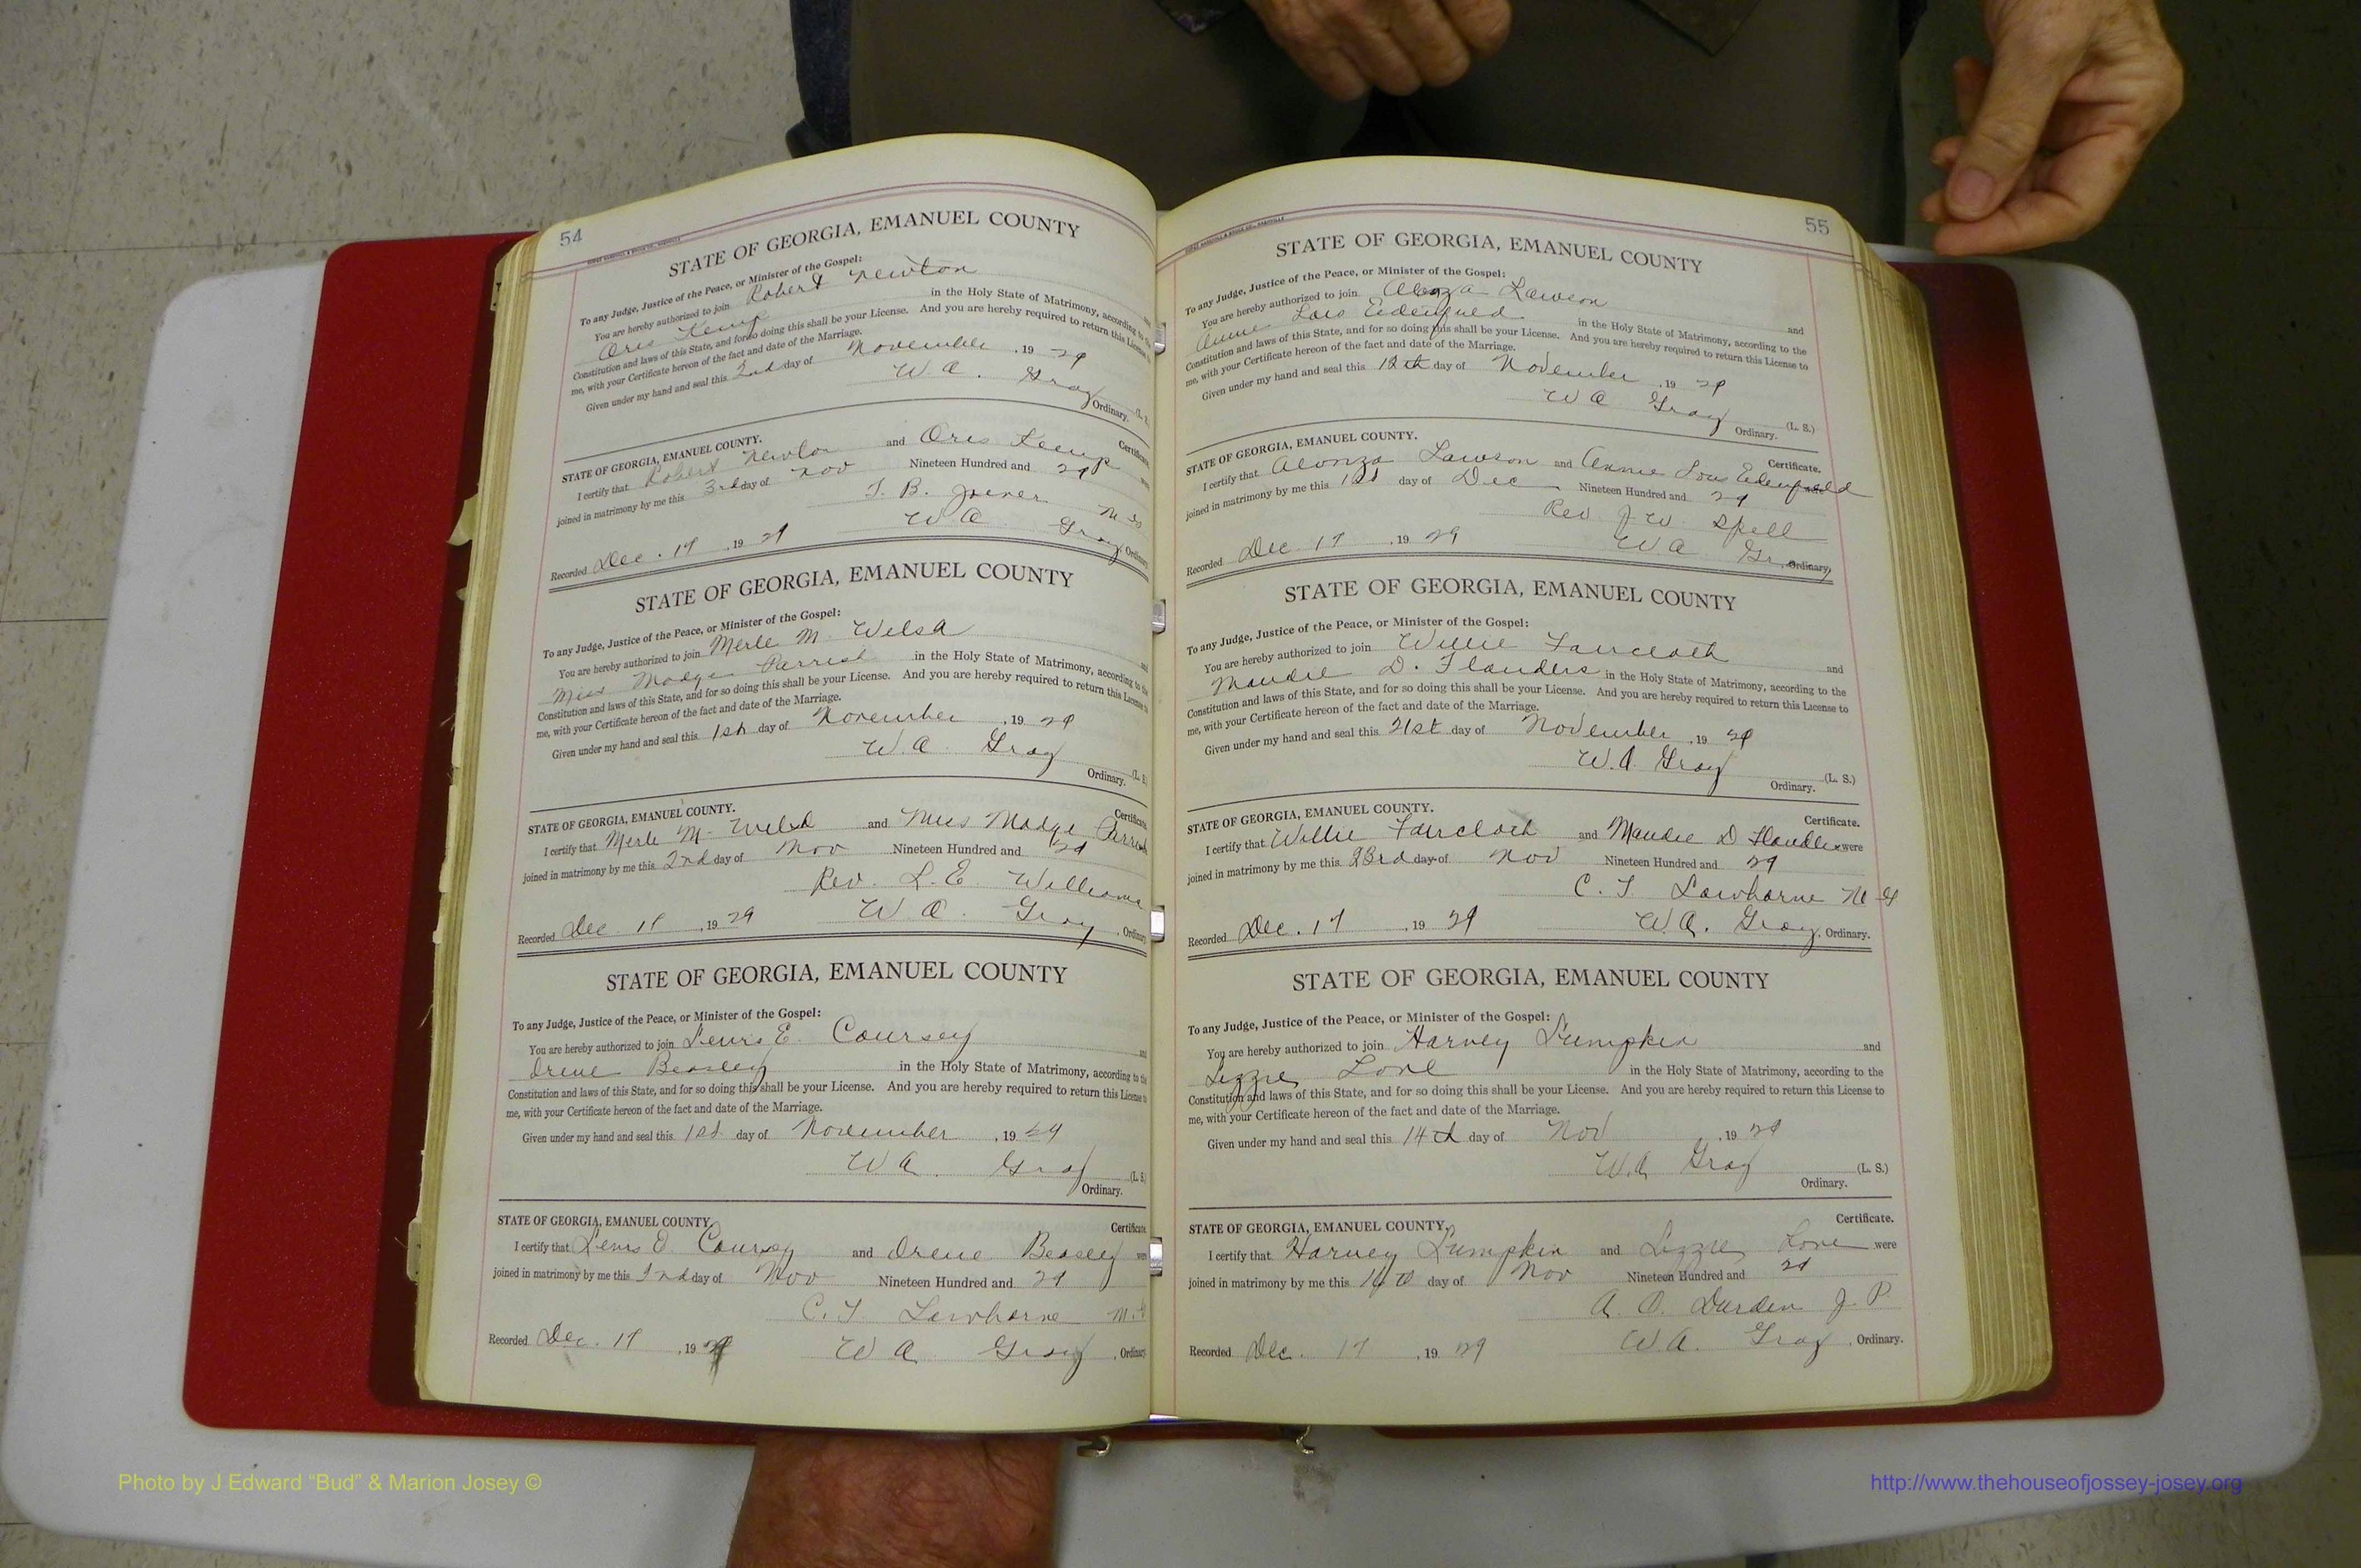 54
STATE OF GEORGIA, EMANUEL COUNTY
To any Judge, Justice of the Peace, or Minister of the Gospel:
You are hereby authorized to join Robert Newton
Oris Kemp in the Holy State of Matrimony, according to the
Constitution and laws of this State, and for so doing this shall be your License. And you are hereby required to return this License to
me, with your Certificate hereon of the fact and date of the Marriage.
Given under my hand and seal this 2nd day of November, 19 29
W. A. Gray (L. S.
Ordinary.
STATE OF GEORGIA, EMANUEL COUNTY. Certificate.
I certify that Robert Newton and Oris Kemp
joined in matrimony by me this 3rd day of Nov Nineteen Hundred and 29
B. M G
Recorded Dec. 17, 19 29 W A Gray, Ordinary
STATE OF GEORGIA, EMANUEL COUNTY
To any Judge, Justice of the Peace, or Minister of the Gospel:
You are hereby authorized to join Merle M. and
Miss Madge Parrish in the Holy State of Matrimony, according to the
Constitution and laws of this State, and for so doing this shall be your License. And you are hereby required to return this License to
me, with your Certificate hereon of the fact and date of the Marriage.
Given under my hand and seal this 1st day of November, 19 29
W. A. Gray (L. S
Ordinary.
STATE OF GEORGIA, EMANUEL COUNTY. Certificate.
I certify that Merle M. and Miss Madge Parrish
joined in matrimony by me this 2nd day of Nov Nineteen Hundred and 29
Rev. L. E. Williams
Recorded Dec. 17, 19 29 W A. Gray, Ordinary
STATE OF GEORGIA, EMANUEL COUNTY
To any Judge, Justice of the Peace, or Minister of the Gospel:
You are hereby authorized to join Lewis E. Coursey and
Irene Beasley in the Holy State of Matrimony, according to the
Constitution and laws of this State, and for so doing this shall be your License. And you are hereby required to return this License to
me, with your Certificate hereon of the fact and date of the Marriage.
Given under my hand and seal this 1st day of November, 19 29
W A. Gray (L. S.
Ordinary.
STATE OF GEORGIA, EMANUEL COUNTY. Certificate.
I certify that Lewis E. Coursey and Irene Beasley were
joined in matrimony by me this 2nd day of Nov Nineteen Hundred and 29
C. T Lawhorne M. G
Recorded Dec. 17, 19 29 W A Gray, Ordinary
55
STATE OF GEORGIA, EMANUEL COUNTY
To any Judge, Justice of the Peace, or Minister of the Gospel:
You are hereby authorized to join Alonza Lawson and
Annie Lois Edenfield in the Holy State of Matrimony, according to the
Constitution and laws of this State, and for so doing this shall be your License. And you are hereby required to return this License to
me, with your Certificate hereon of the fact and date of the Marriage.
Given under my hand and seal this 12th day of November, 19 29
W A Gray (L. S.)
Ordinary.
STATE OF GEORGIA, EMANUEL COUNTY. Certificate.
I certify that Alonza Lawson and Annie Lois Edenfield
joined in matrimony by me this 1st day of Dec Nineteen Hundred and 29
Rev. J. W. Spell
Recorded Dec 17, 19 29 W A Gray, Ordinary
STATE OF GEORGIA, EMANUEL COUNTY
To any Judge, Justice of the Peace, or Minister of the Gospel:
You are hereby authorized to join Willie Faircloth and
Maudie D. Flanders in the Holy State of Matrimony, according to the
Constitution and laws of this State, and for so doing this shall be your License. And you are hereby required to return this License to
me, with your Certificate hereon of the fact and date of the Marriage.
Given under my hand and seal this 21st day of November, 19 29
W. A Gray (L. S.)
Ordinary.
STATE OF GEORGIA, EMANUEL COUNTY. Certificate.
I certify that Willie Faircloth and Maudie D were
joined in matrimony by me this 23rd day of Nov Nineteen Hundred and 29
C. T Lawhorne M G
Recorded Dec. 17, 19 29 W. A. Gray, Ordinary.
STATE OF GEORGIA, EMANUEL COUNTY
To any Judge, Justice of the Peace, or Minister of the Gospel:
You are hereby authorized to join Harvey Lumpkin and
Lizzie Love in the Holy State of Matrimony, according to the
Constitution and laws of this State, and for so doing this shall be your License. And you are hereby required to return this License to
me, with your Certificate hereon of the fact and date of the Marriage.
Given under my hand and seal this 14th day of Nov, 19 29
W. A Gray (L. S.)
Ordinary.
STATE OF GEORGIA, EMANUEL COUNTY. Certificate.
I certify that Harvey Lumpkin and Lizzie Love were
joined in matrimony by me this day of Nov Nineteen Hundred and 29
A. O. Durden J. P
Recorded Dec. 17, 19 29 W A. Gray, Ordinary.
Photo by J Edward “Bud” & Marion Josey ©
http://www.thehouseofjossey-josey.org